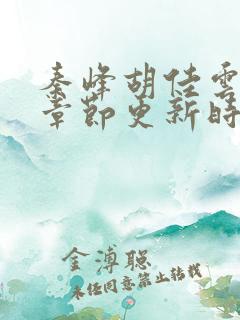 秦峰胡佳雲
章節更新時
金溥聪
未经同意禁止转载